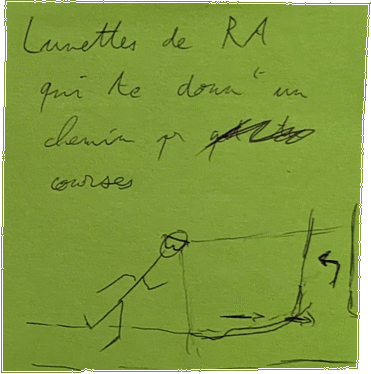 Lunettes de RA
qui te donn^t un
chemin pr
courses